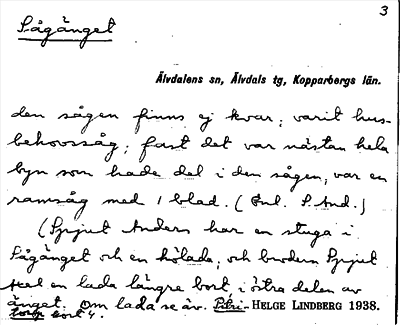 3
Sågänget
Älvdalens sn, Älvdals tg, Kopparbergs län.
den sågen finns ej kvar; varit hus-
behovssåg; fast det var nästan hela
byn som hade del i den sågen, var en
ramsåg med 1 blad. (Enl. S. And.)
(Spjut Anders har en stuga i
Sågänget och en hölada, och brodern Spjut
en lada längre bort i östra delen av
änget. Om lada se äv. HELGE LINDBERG 1938.
bort 4.